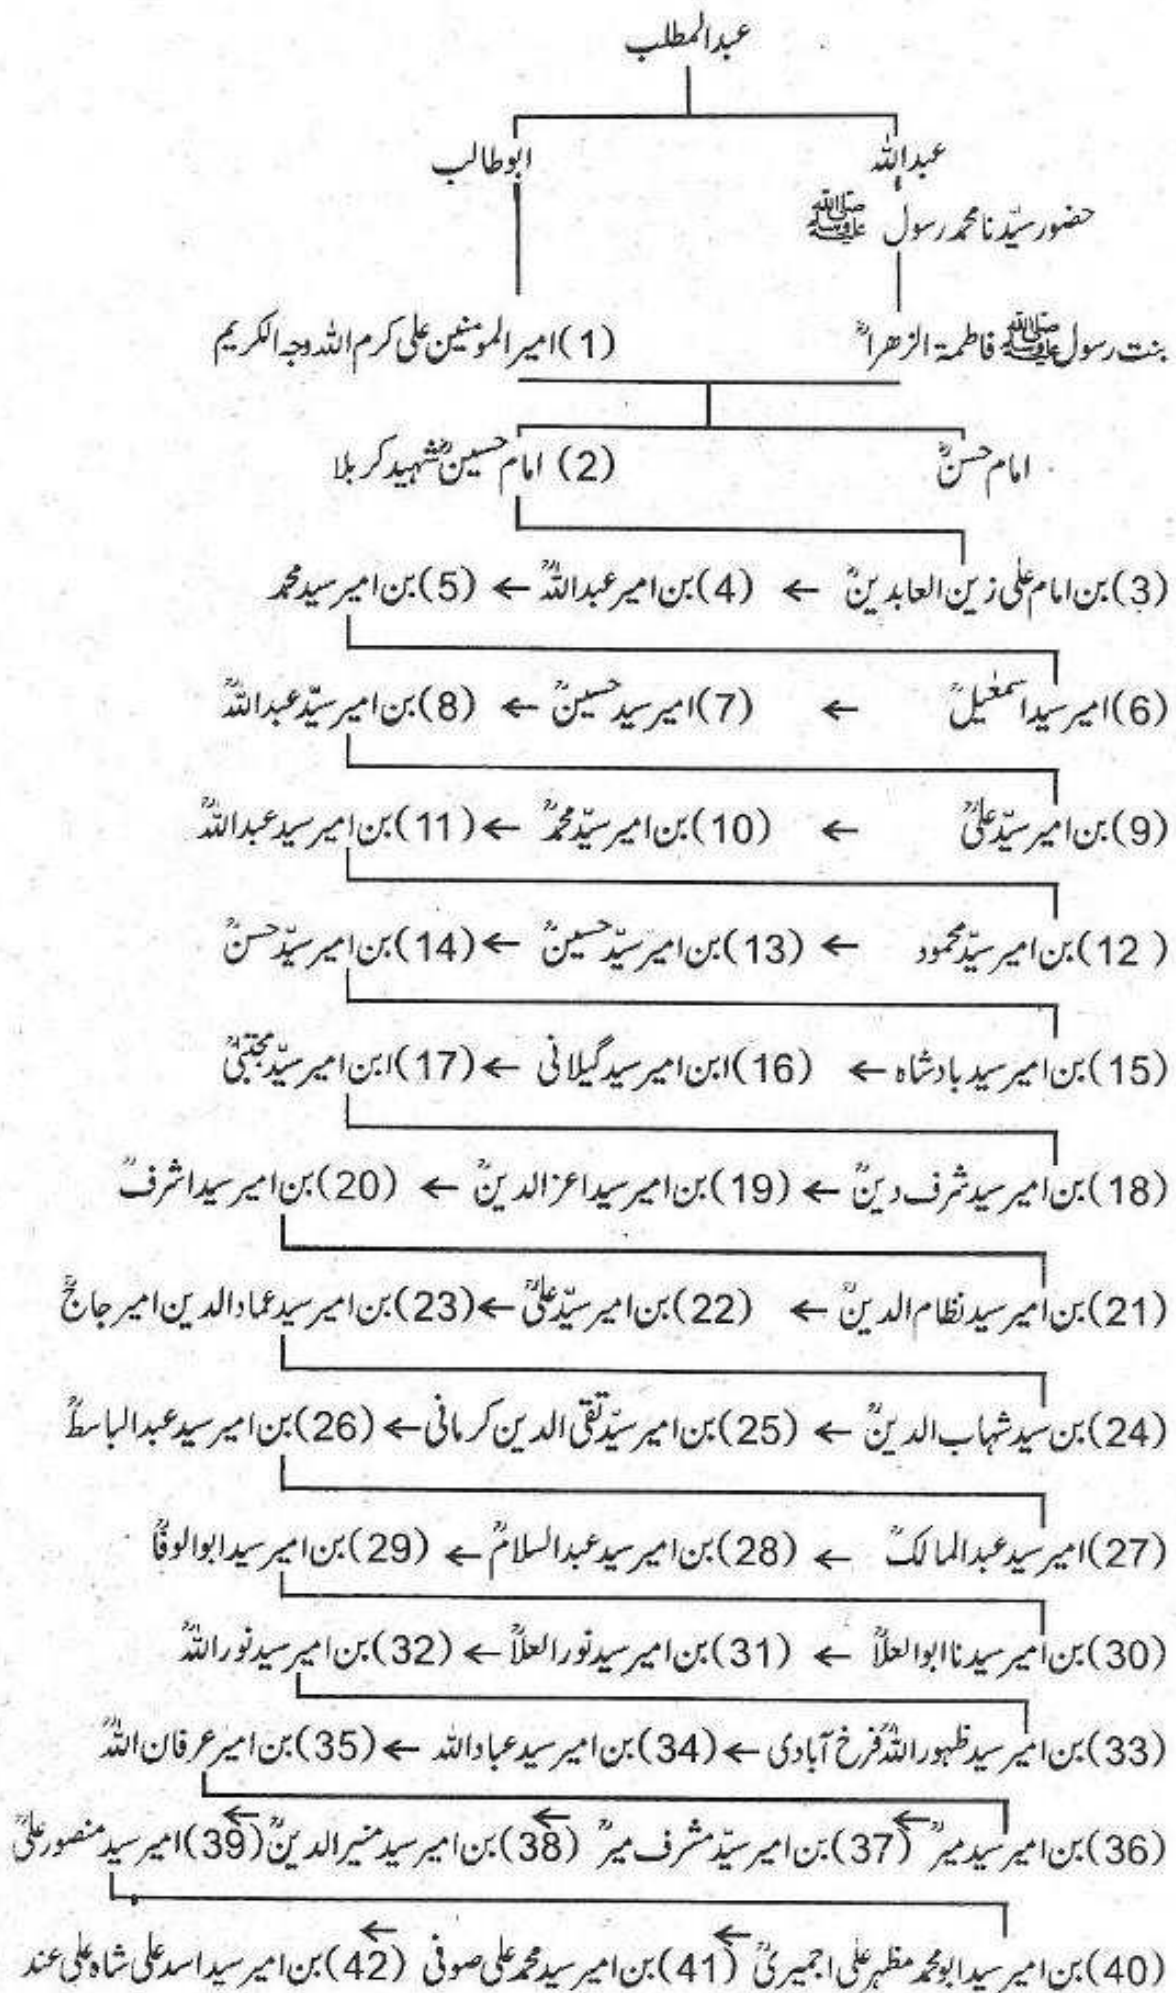 عبدالمطلب
عبداللہ ابوطالب
حضور سیّدنا محمد رسول ﷺ
بنت رسول ﷺ فاطمۃ الزھراؓ (1) امیر المومنین علی کرم اللہ وجہ الکریم
امام حسنؓ (2) امام حسینؓ شہید کربلا
(3) بن امام علی زین العابدینؒ ← (4) بن امیر عبداللہؒ ← (5) بن امیر سید محمد
(6) امیر سید اسمٰعیلؒ ← (7) امیر سید حسینؒ ← (8) بن امیر سیّد عبداللہؒ
(9) بن امیر سیّد علیؒ ← (10) بن امیر سیّد محمدؒ ← (11) بن امیر سید عبداللہؒ
(12) بن امیر سیّد محمود ← (13) بن امیر سیّد حسینؒ ← (14) بن امیر سیّد حسنؒ
(15) بن امیر سید بادشاہ ← (16) ابن امیر سید گیلانی ← (17) ابن امیر سیّد مجتبیٰؒ
(18) بن امیر سید شرف دینؒ ← (19) بن امیر سید اعزالدینؒ ← (20) بن امیر سید اشرفؒ
(21) بن امیر سید نظام الدینؒ ← (22) بن امیر سیّد علیؒ ← (23) بن امیر سید عماد الدین امیر جاجؒ
(24) بن سید شہاب الدینؒ ← (25) بن امیر سیّد تقی الدین کرمانی ← (26) بن امیر سید عبدالباسطؒ
(27) امیر سید عبدالمالکؒ ← (28) بن امیر سید عبدالسلامؒ ← (29) بن امیر سید ابوالوفاؒ
(30) بن امیر سیدنا ابوالعلاؒ ← (31) بن امیر سید نور العلاؒ ← (32) بن امیر سید نور اللہؒ
(33) بن امیر سید ظہور اللہؒ فرخ آبادی ← (34) بن امیر سید عباد اللہ ← (35) بن امیر عرفان اللہؒ
(36) بن امیر سید میرؒ ← (37) بن امیر سیّد مشرف میرؒ ← (38) بن امیر سید منیر الدینؒ ← (39) امیر سید منصور علیؒ
(40) بن امیر سید ابو محمد مظہر علی اجمیریؒ ← (41) بن امیر سید محمد علی صوفی ← (42) بن امیر سید اسد علی شاہ علی عند